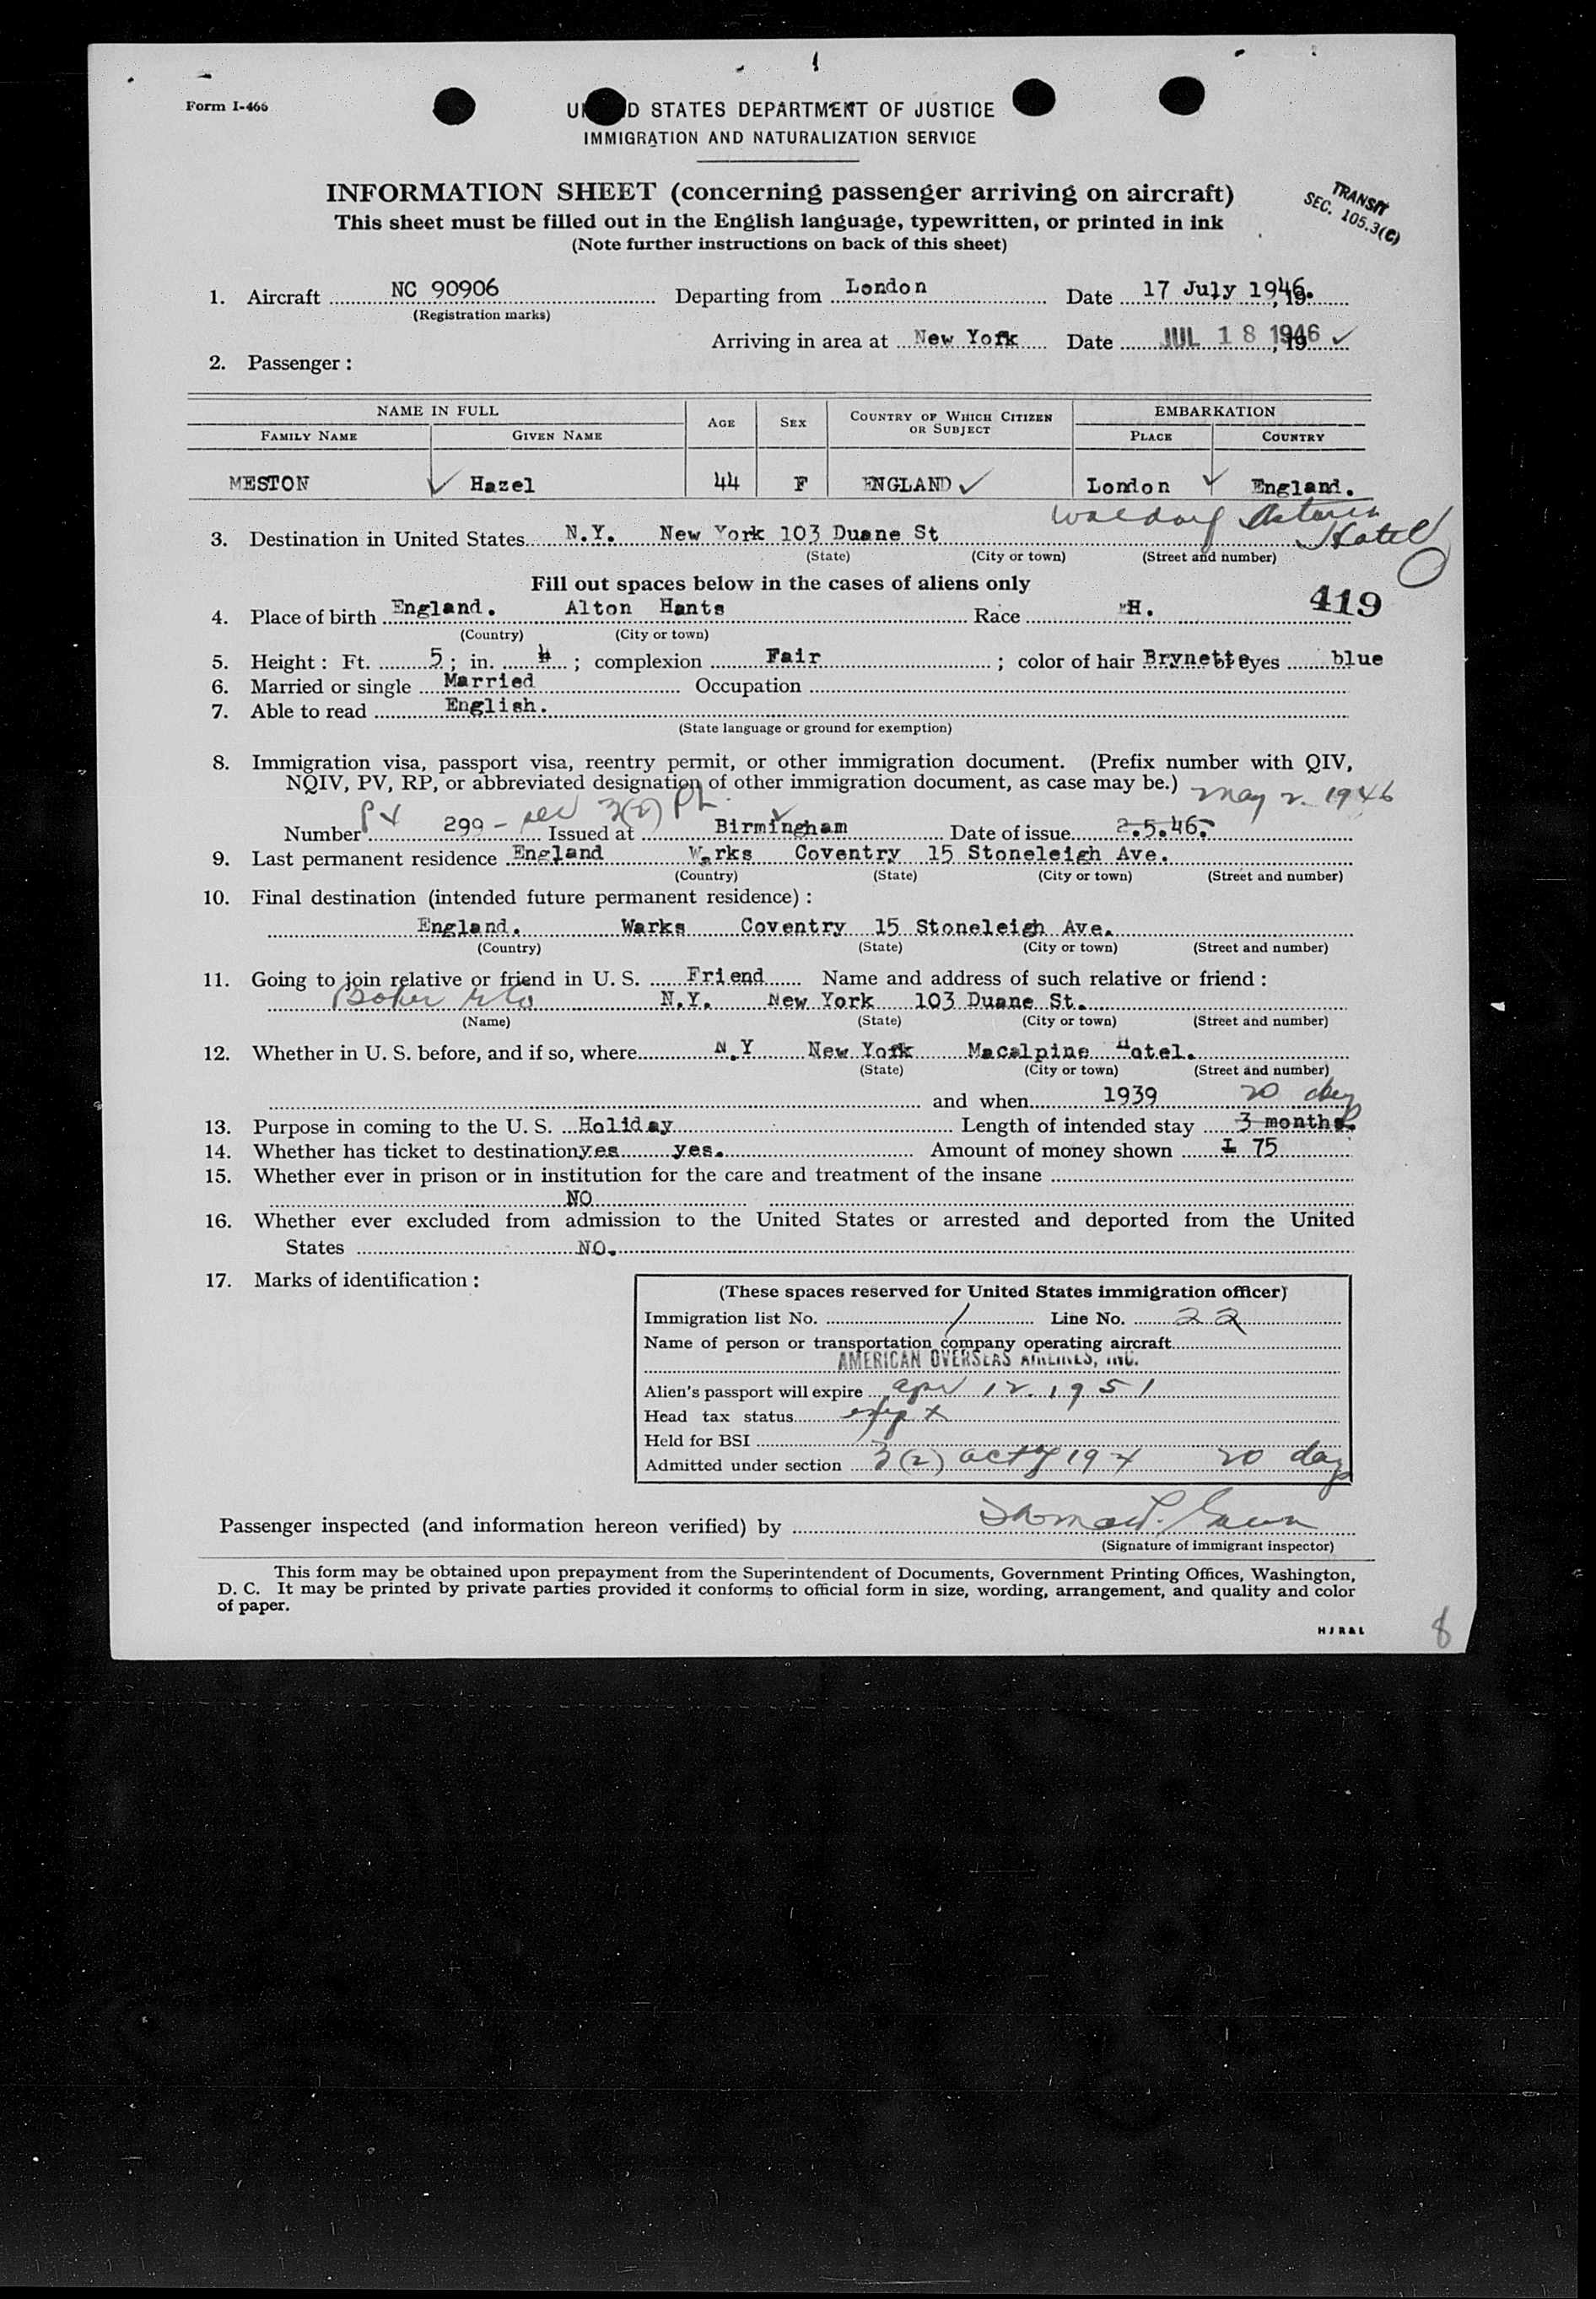 Form I-466
UNITED STATES DEPARTMENT OF JUSTICE
IMMIGRATION AND NATURALIZATION SERVICE
INFORMATION SHEET (concerning passenger arriving on aircraft)
TRANSIT
SEC. 105.3(C)
This sheet must be filled out in the English language, typewritten, or printed in ink
(Note further instructions on back of this sheet)
1. Aircraft NC 90906 Departing from London Date 17 July 1946.
(Registration marks)
Arriving in area at New York Date JUL 18 1946
2. Passenger :
NAME IN FULL AGE SEX COUNTRY OF WHICH CITIZEN OR SUBJECT EMBARKATION
FAMILY NAME GIVEN NAME PLACE COUNTRY
MESTON Hazel 44 F ENGLAND London England.
Waldorf Astoria
Hotel
3. Destination in United States N.Y. New York 103 Duane St
(State) (City or town) (Street and number)
Fill out spaces below in the cases of aliens only
419
4. Place of birth England. Alton Hants Race H.
(Country) (City or town)
5. Height : Ft. 5 ; in. 4 ; complexion Fair ; color of hair Brynette of eyes blue
6. Married or single Married Occupation
7. Able to read English.
(State language or ground for exemption)
8. Immigration visa, passport visa, reentry permit, or other immigration document. (Prefix number with QIV,
NQIV, PV, RP, or abbreviated designation of other immigration document, as case may be.)
May 2. 1946
Number PV 299 - sec 3(2) Issued at Birmingham Date of issue 2.5.46.
9. Last permanent residence England Warks Coventry 15 Stoneleigh Ave.
(Country) (State) (City or town) (Street and number)
10. Final destination (intended future permanent residence) :
England. Warks Coventry 15 Stoneleigh Ave.
(Country) (State) (City or town) (Street and number)
11. Going to join relative or friend in U. S. Friend Name and address of such relative or friend :
N.Y. New York 103 Duane St.
(Name) (State) (City or town) (Street and number)
12. Whether in U. S. before, and if so, where N.Y New York Macalpine Hotel.
(State) (City or town) (Street and number)
and when 1939 20 days
13. Purpose in coming to the U. S. Holiday Length of intended stay 3 months.
14. Whether has ticket to destination yes yes. Amount of money shown £ 75
15. Whether ever in prison or in institution for the care and treatment of the insane
NO
16. Whether ever excluded from admission to the United States or arrested and deported from the United
States NO.
17. Marks of identification :
(These spaces reserved for United States immigration officer)
Immigration list No. 1 Line No. 22
Name of person or transportation company operating aircraft
AMERICAN OVERSEAS AIRLINES, INC.
Alien's passport will expire Apr 12. 1951
Head tax status
Held for BSI
Admitted under section 3(2) act of 1924 20 days
Passenger inspected (and information hereon verified) by
(Signature of immigrant inspector)
This form may be obtained upon prepayment from the Superintendent of Documents, Government Printing Offices, Washington,
D. C. It may be printed by private parties provided it conforms to official form in size, wording, arrangement, and quality and color
of paper.
H J R & L
8